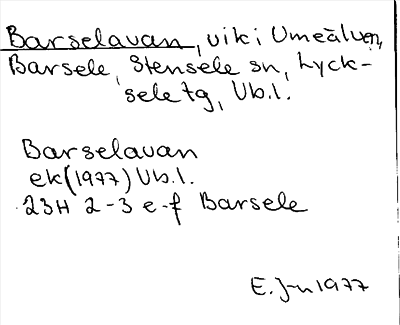 Barselavan, vik i Umeälven,
Barsele, Stensele sn, Lyck-
sele tg, Vb.l.
Barselavan
ek(1977) Vb.l.
23H 2-3 e-f Barsele
E. J-n 1977